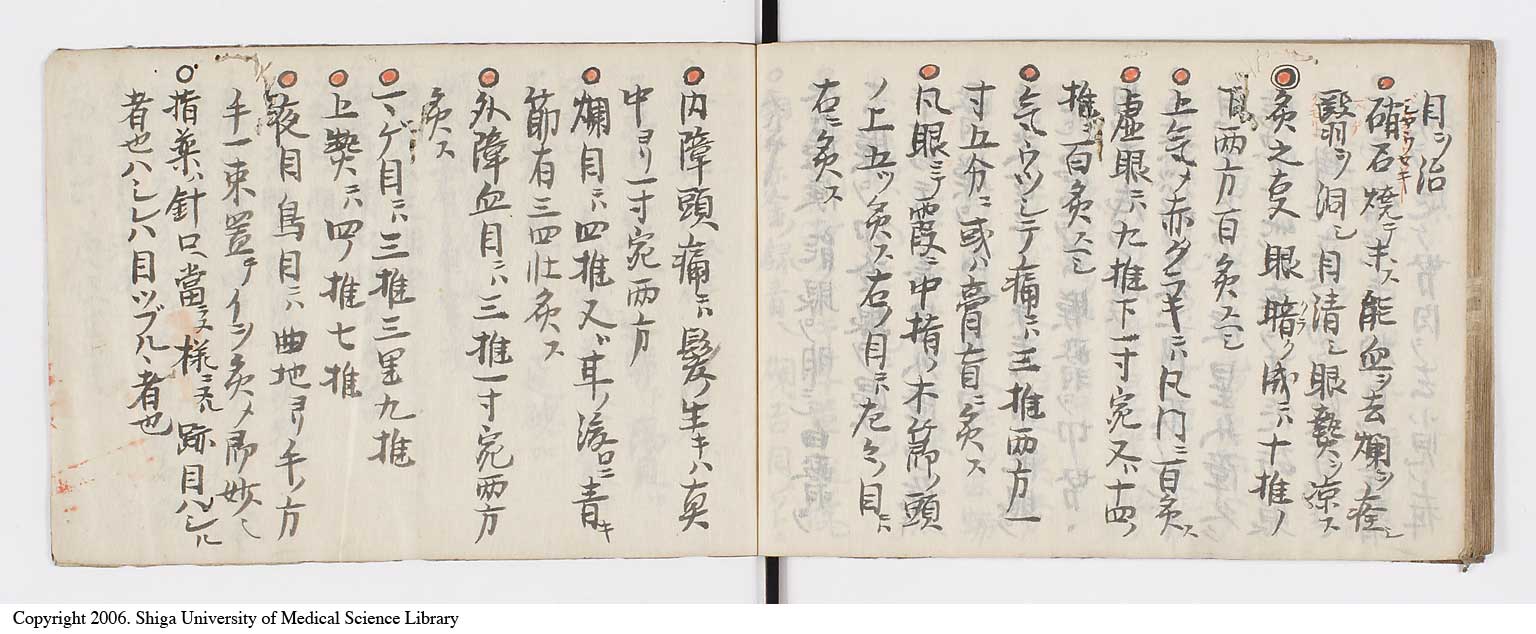 目ヲ治
硝石焼テ末ス能血ヲ去爛ヲ痊シ
ショウセキ
翳ヲ洞シ目清シ眼熱ヲ凉ス
灸之 眼暗ク成ニハ十推ノ
クラ
下両方百灸スヘシ
上氣メ赤クラキニハ凡門ニ百灸ス
虚眼ニハ九推下一寸宛又ハ十四ノ
推ヲ一百灸スヘシ
氣ウツシテ痛ニハ三推両方一
寸五分ニ或ハ膏肓ニ灸ス
凡眼ニテ霞ニ中指ノ本節ノ頭
ノ上五ツ灸ス右ノ目ニハ左々ノ目ニハ
右ニ灸ス
内障頭痛ニハ髪ノ生キハ真
中ヨリ一寸宛両方
爛目ニハ四推又ハ耳ノ後口ニ青キ
筋有三四壮灸ス
外障血目ニハ三推一寸宛両方
灸ス
マゲ目ニハ三推三里九推
上熱ニハ四ノ推七推
夜目鳥目ニハ曲地ヨリ手ノ方
千一束置テイシ灸メ即妙シ
指薬ハ針口ハ當ヌ様ニスル跡目ハシル
者也ハシレハ目ツブルヽ者也
Copyright 2006. Shiga University of Medical Science Library